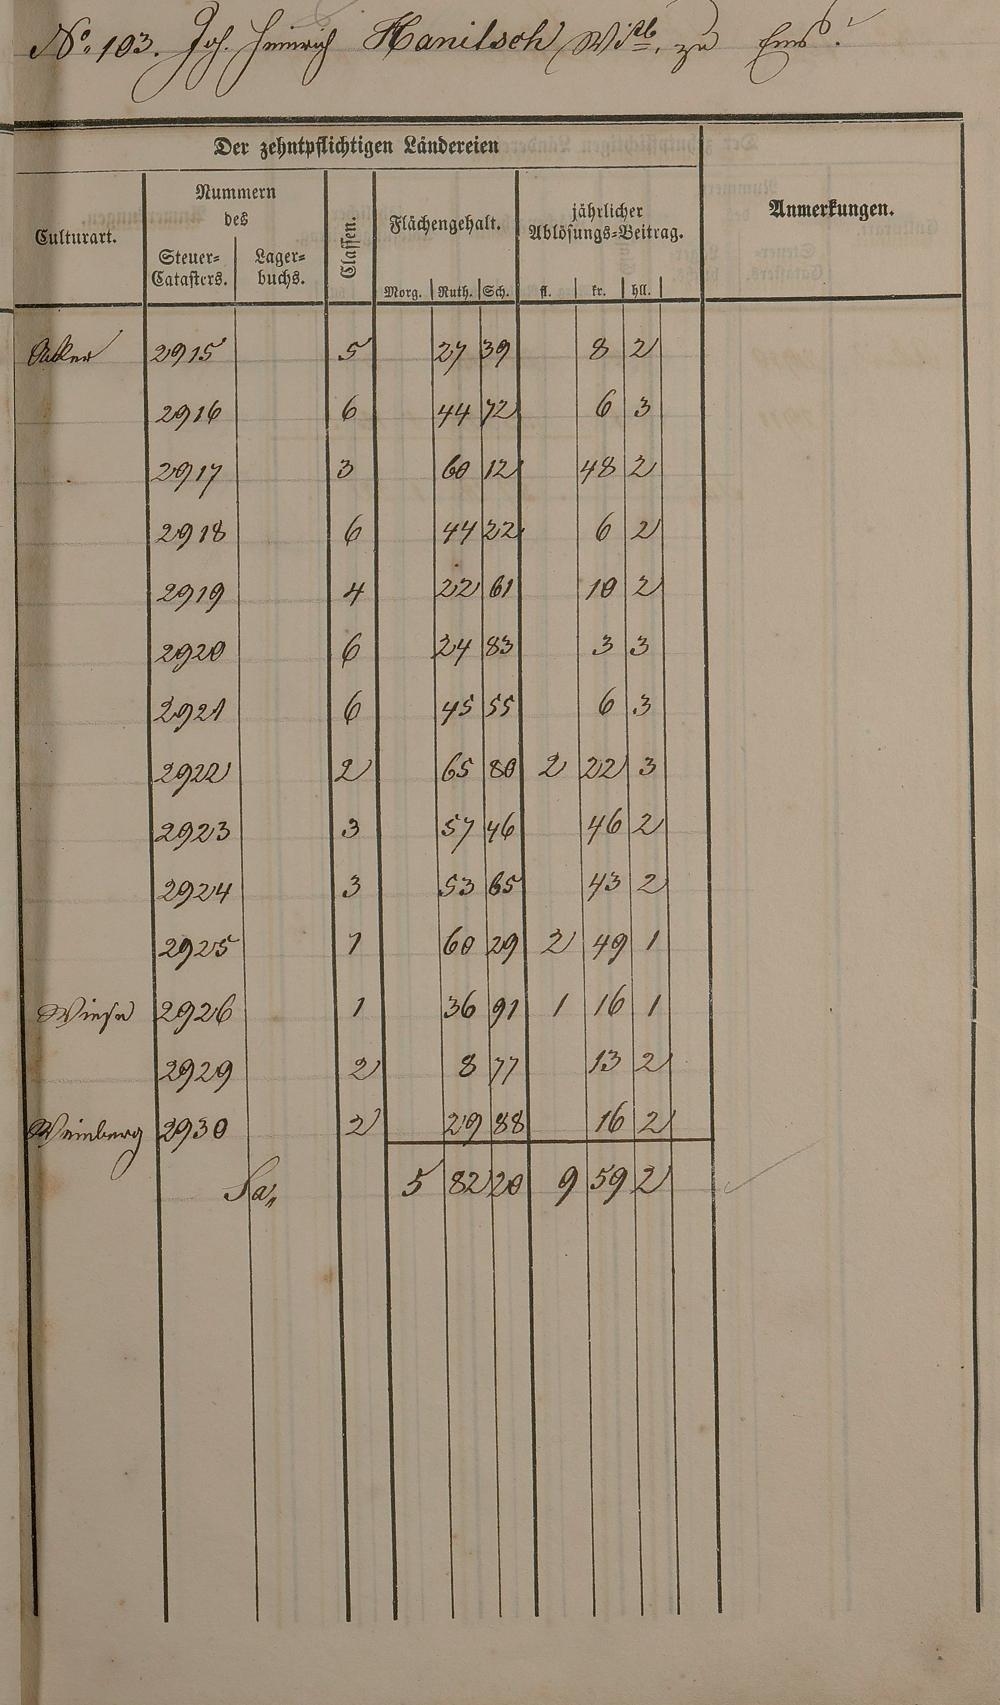 No. 103. Joh. Heinrich Hanitsch Witb. zu Ems.
Der zehntpflichtigen Ländereien
Culturart.
Nummern
des
Steuer-
Catasters.
Lager-
buchs.
Classen.
Flächengehalt.
Morg. Ruth. Sch.
jährlicher
Ablösungs-Beitrag.
fl. kr. hll.
Anmerkungen.
Acker 2915 5 27 39 8 2
2916 6 44 72 6 3
2917 3 60 12 48 2
2918 6 44 22 6 2
2919 4 22 61 10 2
2920 6 24 83 3 3
2921 6 45 55 6 3
2922 2 65 80 2 22 3
2923 3 57 46 46 2
2924 3 53 65 43 2
2925 1 60 29 2 49 1
Wiese 2926 1 36 91 1 16 1
2929 2 8 77 13 2
Weinberg 2930 2 29 88 16 2
Sa„ 5 82 20 9 59 2